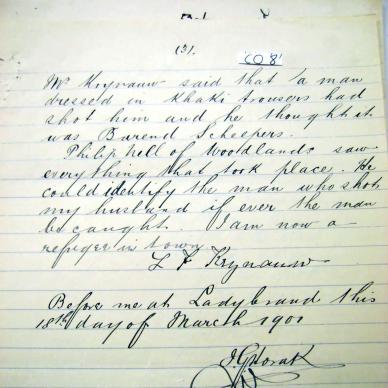 (3).
CO 8
Mr Krynauw said that a man
dressed in khaki trousers had
shot him and he thought it
was Barend Scheepers.
Philip Nell of Wooldlands saw
everything that took place. He
could identify the man who shot
my husband if ever the man
be caught. I am now a
refugee in town
L F Krynauw
Before me at Ladybrand this
18th day of March 1901